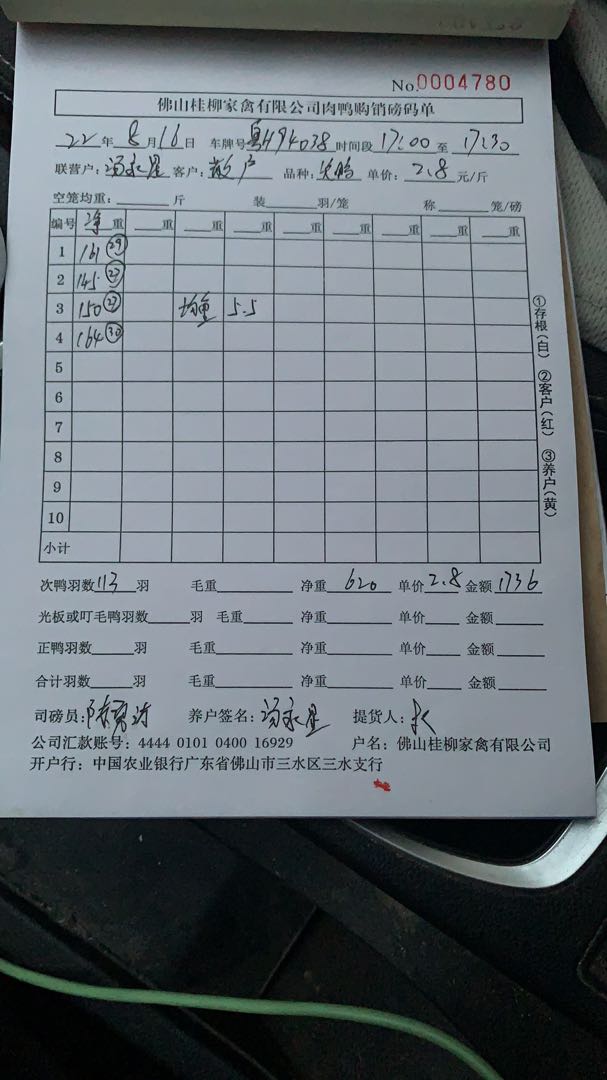 No.0004780
佛山桂柳家禽有限公司肉鸭购销磅码单
22年8月16日 车牌号粤H94038时间段17:00至17:30
联营户:汤永星 客户:散户 品种: 单价:2.8元/斤
空笼均重:斤 装羽/笼 称笼/磅
编号 净重 重 重 重 重 重 重 重 重
1 161 29
2 145 27
3 150 27 均重 5.5
4 164 30
5
6
7
8
9
10
小计
①存根(白) ②客户(红) ③养户(黄)
次鸭羽数113羽 毛重 净重620 单价2.8 金额1736
光板或叮毛鸭羽数羽 毛重 净重 单价 金额
正鸭羽数羽 毛重 净重 单价 金额
合计羽数羽 毛重 净重 单价 金额
司磅员: 养户签名:汤永星 提货人:
公司汇款账号:4444 0101 0400 16929 户名:佛山桂柳家禽有限公司
开户行:中国农业银行广东省佛山市三水区三水支行